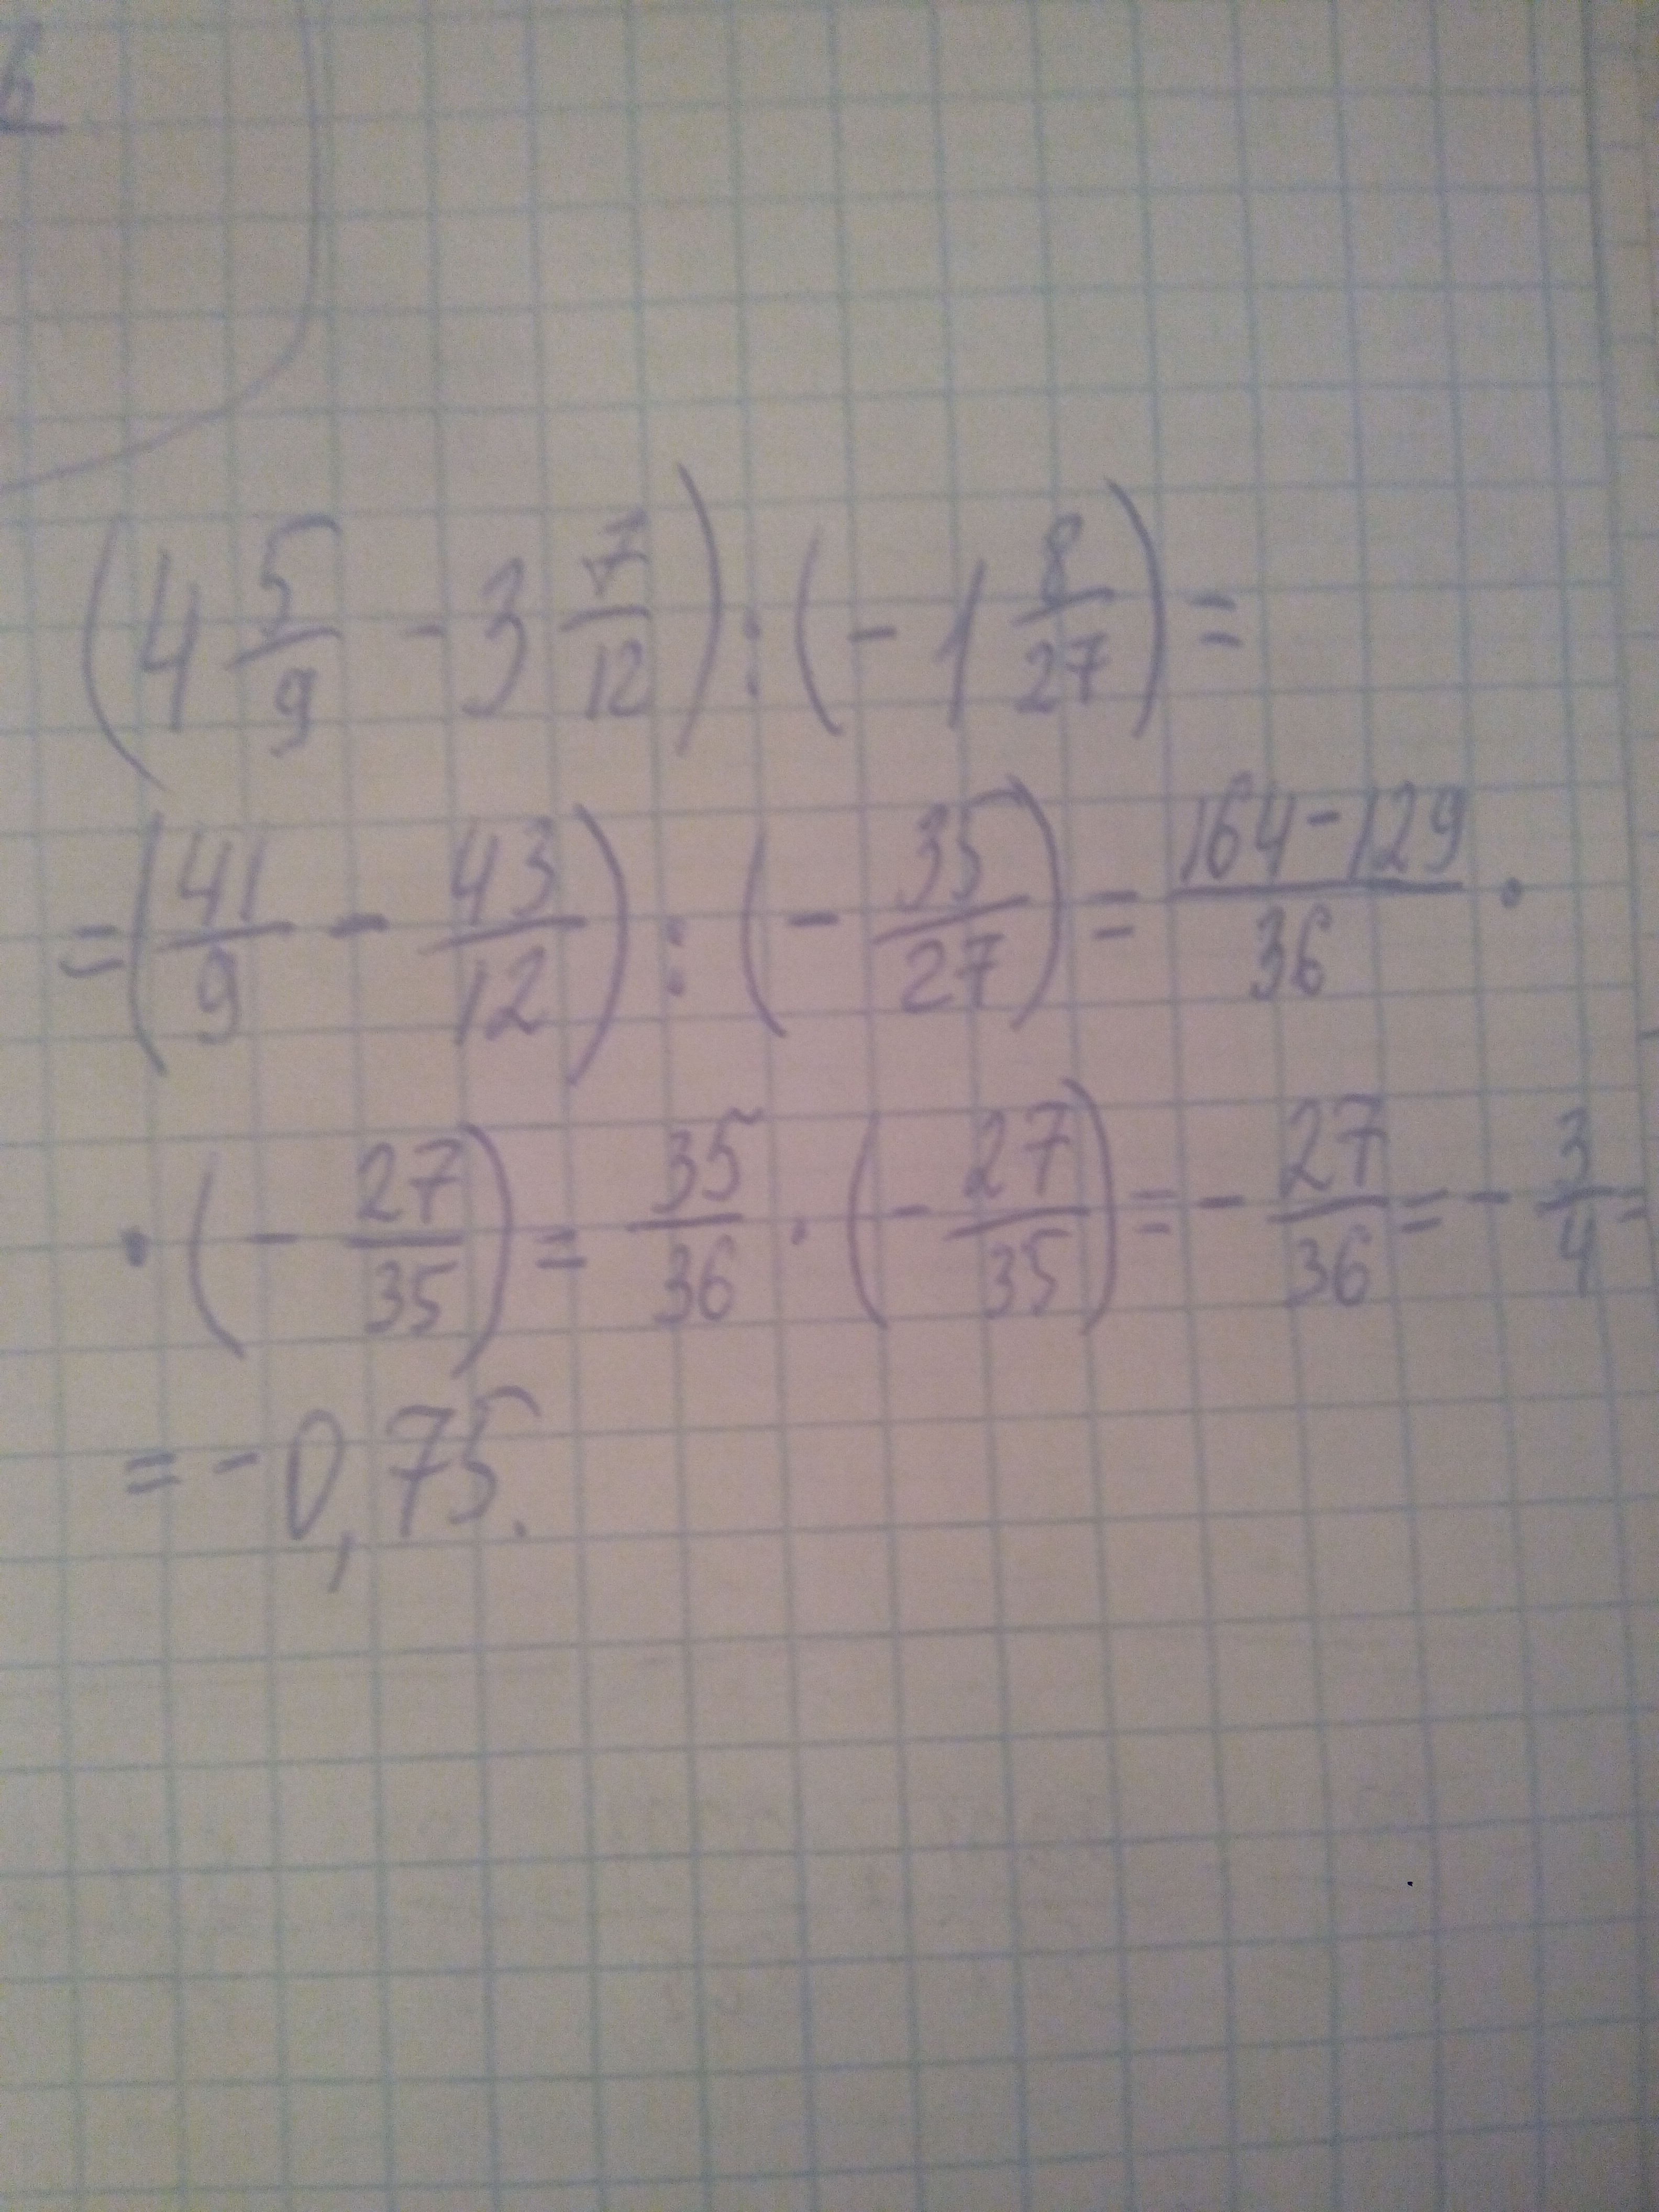 (4 5/9 - 3 7/12) : (- 1 8/27) =
= (41/9 - 43/12) : (- 35/27) = 164-129/36 ·
· (- 27/35) = 35/36 · (- 27/35) = - 27/36 = - 3/4 =
= - 0,75.